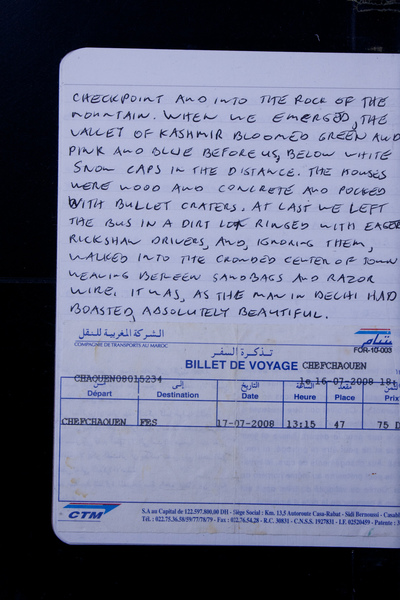 CHECKPOINT AND INTO THE ROCK OF THE
MOUNTAIN. WHEN WE EMERGED, THE
VALLEY OF KASHMIR BLOOMED GREEN AND
PINK AND BLUE BEFORE US, BELOW WHITE
SNOW CAPS IN THE DISTANCE. THE HOUSES
WERE WOOD AND CONCRETE AND POCKED
WITH BULLET CRATERS. AT LAST WE LEFT
THE BUS IN A DIRT LOT RINGED WITH EAGER
RICKSHAW DRIVERS, AND, IGNORING THEM,
WALKED INTO THE CROWDED CENTER OF TOWN
WEAVING BETWEEN SANDBAGS AND RAZOR
WIRE. IT WAS, AS THE MAN IN DELHI HAD
BOASTED, ABSOLUTELY BEAUTIFUL.
الشركة المغربية للنقل
COMPAGNIE DE TRANSPORTS AU MAROC
FOR-10-003
تذكرة السفر
BILLET DE VOYAGE CHEFCHAOUEN
CHAOUEN08015234 le 16-07-2008 18:
من إلى التاريخ الساعة مقعد الثمن
Départ Destination Date Heure Place Prix
CHEFCHAOUEN FES 17-07-2008 13:15 47 75 D
CTM
S.A au Capital de 122.597.800.00 DH - Siège Social : Km. 13,5 Autoroute Casa-Rabat - Sidi Bernoussi - Casabl
Tél. : 022.75.36.58/59/77/78/79 - Fax : 022.76.54.28 - R.C. 30831 - C.N.S.S. 1927831 - I.F. 02520459 - Patente : 3